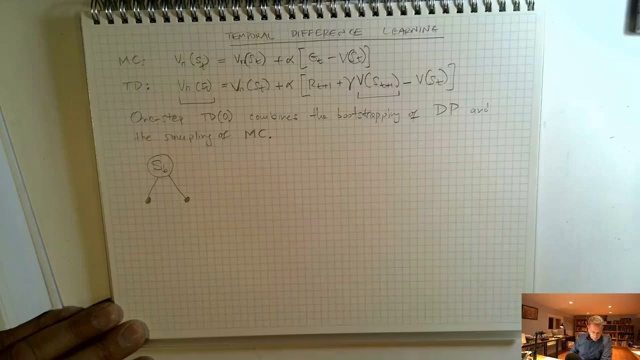 TEMPORAL DIFFERENCE LEARNING
MC: Vπ(St) = Vπ(St) + α [Gt − V(St)]
TD: Vπ(St) = Vπ(St) + α [Rt+1 + γV(St+1) − V(St)]
One step TD(0) combines the bootstrapping of DP and
the sampling of MC.
St